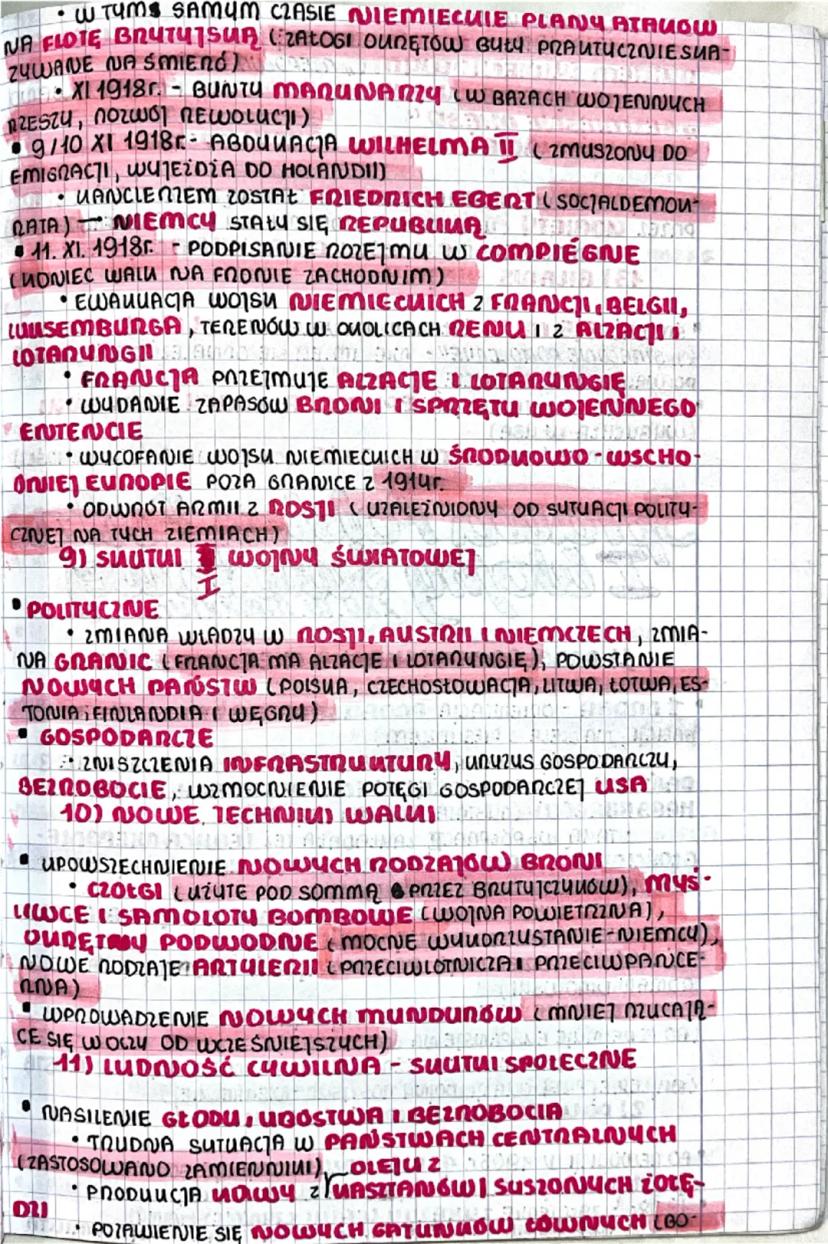 • W TYM SAMYM CZASIE NIEMIECKIE PLANY ATAKÓW
NA FLOTĘ BRYTYJSKĄ (ZAŁOGI OKRĘTÓW BYŁY PRAKTYCZNIE SKA-
ZYWANE NA ŚMIERĆ)
• XI 1918r. - BUNTY MARYNARZY (W BAZACH WOJENNYCH
RZESZY, ROZWÓJ REWOLUCJI)
• 9/10 XI 1918r. - ABDYKACJA WILHELMA II (ZMUSZONY DO
EMIGRACJI, WYJEŻDŻA DO HOLANDII)
• KANCLERZEM ZOSTAŁ FRIEDRICH EBERT (SOCJALDEMOK-
RATA) → NIEMCY STAŁY SIĘ REPUBLIKĄ
• 11. XI. 1918r. - PODPISANIE ROZEJMU W COMPIÉGNE
(KONIEC WALK NA FRONIE ZACHODNIM)
• EWAKUACJA WOJSK NIEMIECKICH Z FRANCJI, BELGII,
LUKSEMBURGA, TERENÓW W OKOLICACH RENU I Z ALZACJI I
LOTARYNGII
• FRANCJA PRZEJMUJE ALZACJĘ I LOTARYNGIĘ
• WYDANIE ZAPASÓW BRONI I SPRZĘTU WOJENNEGO
ENTENCIE
• WYCOFANIE WOJSK NIEMIECKICH W ŚRODKOWO-WSCHO-
DNIEJ EUROPIE POZA GRANICE Z 1914r.
• ODWRÓT ARMII Z ROSJI (UZALEŻNIONY OD SYTUACJI POLITY-
CZNEJ NA TYCH ZIEMIACH)
9) SKUTKI I WOJNY ŚWIATOWEJ
• POLITYCZNE
• ZMIANA WŁADZY W ROSJI, AUSTRII I NIEMCZECH, ZMIA-
NA GRANIC (FRANCJA MA ALZACJĘ I LOTARYNGIĘ), POWSTANIE
NOWYCH PAŃSTW (POLSKA, CZECHOSŁOWACJA, LITWA, ŁOTWA, ES-
TONIA, FINLANDIA I WĘGRY)
• GOSPODARCZE
• ZNISZCZENIA INFRASTRUKTURY, KRYZYS GOSPODARCZY,
BEZROBOCIE, WZMOCNIENIE POTĘGI GOSPODARCZEJ USA
10) NOWE TECHNIKI WALKI
• UPOWSZECHNIENIE NOWYCH RODZAJÓW BRONI
• CZOŁGI (UŻYTE POD SOMMĄ PRZEZ BRYTYJCZYKÓW), MYŚ-
LIWCE I SAMOLOTY BOMBOWE (WOJNA POWIETRZNA),
OKRĘTY PODWODNE (MOCNE WYKORZYSTANIE-NIEMCY),
NOWE RODZAJE ARTYLERII (PRZECIWLOTNICZA I PRZECIWPANCE-
RNA)
• WPROWADZENIE NOWYCH MUNDURÓW (MNIEJ RZUCAJĄ-
CE SIĘ W OCZY OD WCZEŚNIEJSZYCH)
11) LUDNOŚĆ CYWILNA - SKUTKI SPOŁECZNE
• NASILENIE GŁODU, UBÓSTWA I BEZROBOCIA
• TRUDNA SYTUACJA W PAŃSTWACH CENTRALNYCH
(ZASTOSOWANO ZAMIENNIKI), OLEJU Z
• PRODUKCJA KAWY Z KASZTANÓW I SUSZONYCH ŻOŁĘ-
DZI
• POJAWIENIE SIĘ NOWYCH GATUNKÓW ŁOWNYCH (BO-